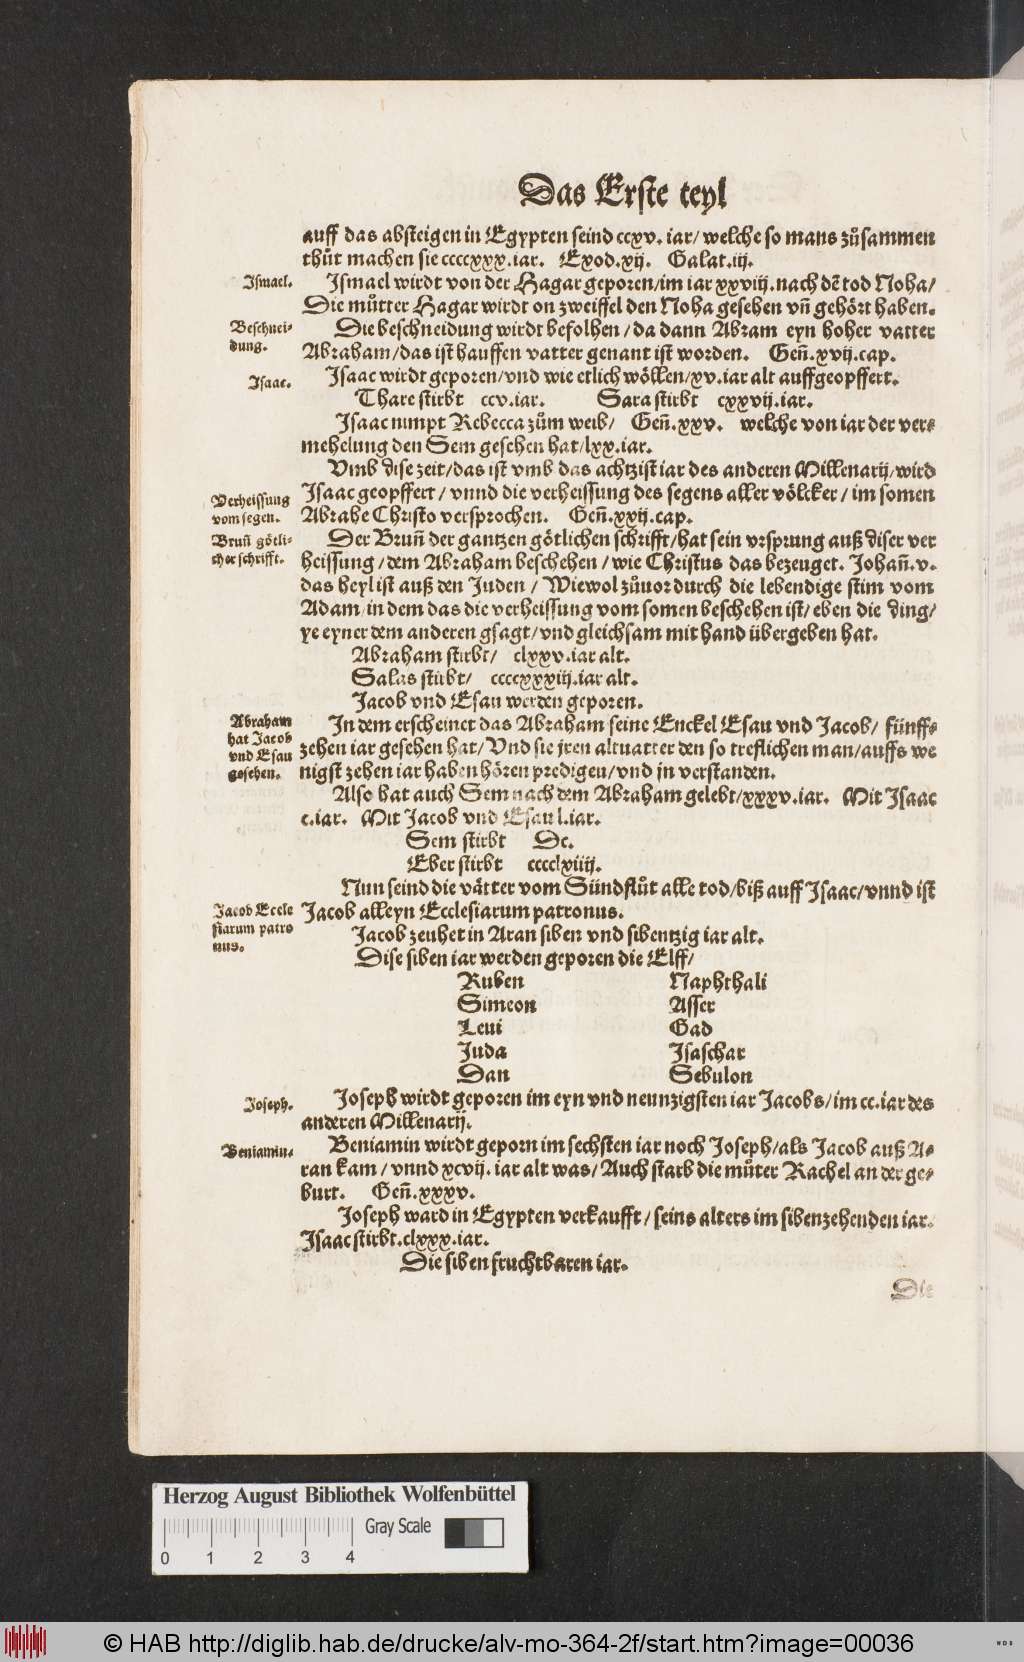 Das Erste teyl
auff das absteigen in Egypten seind ccxv. iar/ welche so mans zůsammen
thůt machen sie ccccxxx.iar. Exod.xij. Galat.iij.
Ismael.
Ismael wirdt von der Hagar geporen/im iar xxviij.nach dẽ tod Noha/
Die můtter Hagar wirdt on zweiffel den Noha gesehen vñ gehört haben.
Beschnei-
dung.
Die beschneidung wirdt befolhen/da dann Abram eyn hoher vatter
Abraham/das ist hauffen vatter genant ist worden. Geñ.xvij.cap.
Isaac.
Isaac wirdt geporen/vnd wie etlich wöllen/xv.iar alt auffgeopffert.
Thare stirbt ccv.iar. Sara stirbt cxxvij.iar.
Isaac nimpt Rebecca zům weib/ Geñ.xxv. welche von iar der ver-
mehelung den Sem gesehen hat/lxx.iar.
Vmb dise zeit/das ist vmb das achtzist iar des anderen Millenarij/wird
Verheissung
vom segen.
Isaac geopffert/ vnnd die verheissung des segens aller völcker/ im somen
Abrahe Christo versprochen. Geñ.xxij.cap.
Bruñ götli-
cher schrifft.
Der Bruñ der gantzen götlichen schrifft/hat sein vrsprung auß diser ver
heissung/dem Abraham beschehen/wie Christus das bezeuget. Johañ.v.
das heyl ist auß den Juden/ Wiewol zůuor durch die lebendige stim vom
Adam/in dem das die verheissung vom somen beschehen ist/eben die ding/
ye eyner dem anderen gsagt/vnd gleichsam mit hand übergeben hat.
Abraham stirbt/ clxxv.iar alt.
Salas stirbt/ ccccxxxiij.iar alt.
Jacob vnd Esau werden geporen.
Abraham
hat Jacob
vnd Esau
gesehen.
In dem erscheinet das Abraham seine Enckel Esau vnd Jacob/ fünff-
zehen iar gesehen hat/Vnd sie jren altuatter den so treflichen man/auffs we
nigst zehen iar haben hören predigen/vnd jn verstanden.
Also hat auch Sem nach dem Abraham gelebt/xxxv.iar. Mit Isaac
c.iar. Mit Jacob vnd Esau l.iar.
Sem stirbt Dc.
Eber stirbt cccclxiiij.
Nun seind die vätter vom Sündflůt alle tod/biß auff Isaac/vnnd ist
Jacob Eccle
siarum patro
nus.
Jacob alleyn Ecclesiarum patronus.
Jacob zeuhet in Aran siben vnd sibentzig iar alt.
Dise siben iar werden geporen die Elff/
Ruben Naphthali
Simeon Asser
Leui Gad
Juda Isaschar
Dan Sebulon
Joseph.
Joseph wirdt geporen im eyn vnd neunzigsten iar Jacobs/im cc.iar des
anderen Millenarij.
Beniamin.
Beniamin wirdt geporn im sechsten iar noch Joseph/als Jacob auß A-
ran kam/vnnd xcvij.iar alt was/Auch starb die můter Rachel an der ge-
burt. Geñ.xxxv.
Joseph ward in Egypten verkaufft/seins alters im sibenzehenden iar.
Isaac stirbt.clxxx.iar.
Die siben fruchtbaren iar.
Die
Herzog August Bibliothek Wolfenbüttel
Gray Scale
0 1 2 3 4
© HAB http://diglib.hab.de/drucke/alv-mo-364-2f/start.htm?image=00036